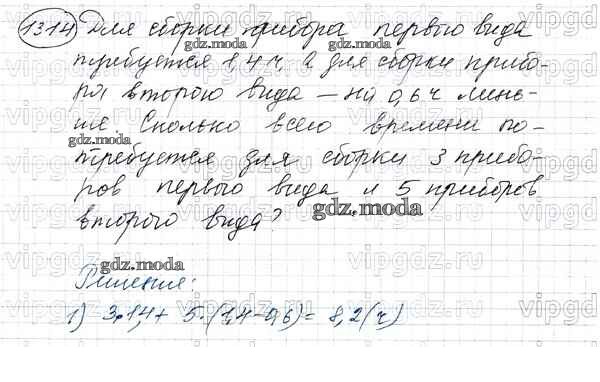 1314 Для сборки прибора первого вида
требуется 1,4 ч, а для сборки прибо-
ра второго вида – на 0,6 ч мень-
ше. Сколько всего времени по-
требуется для сборки 3 прибо-
ров первого вида и 5 приборов
второго вида?
Решение:
1) 3·1,4 + 5·(1,4-0,6) = 8,2 (ч)
gdz.moda
gdz.moda
gdz.moda
gdz.moda
gdz.moda
vipgdz.ru